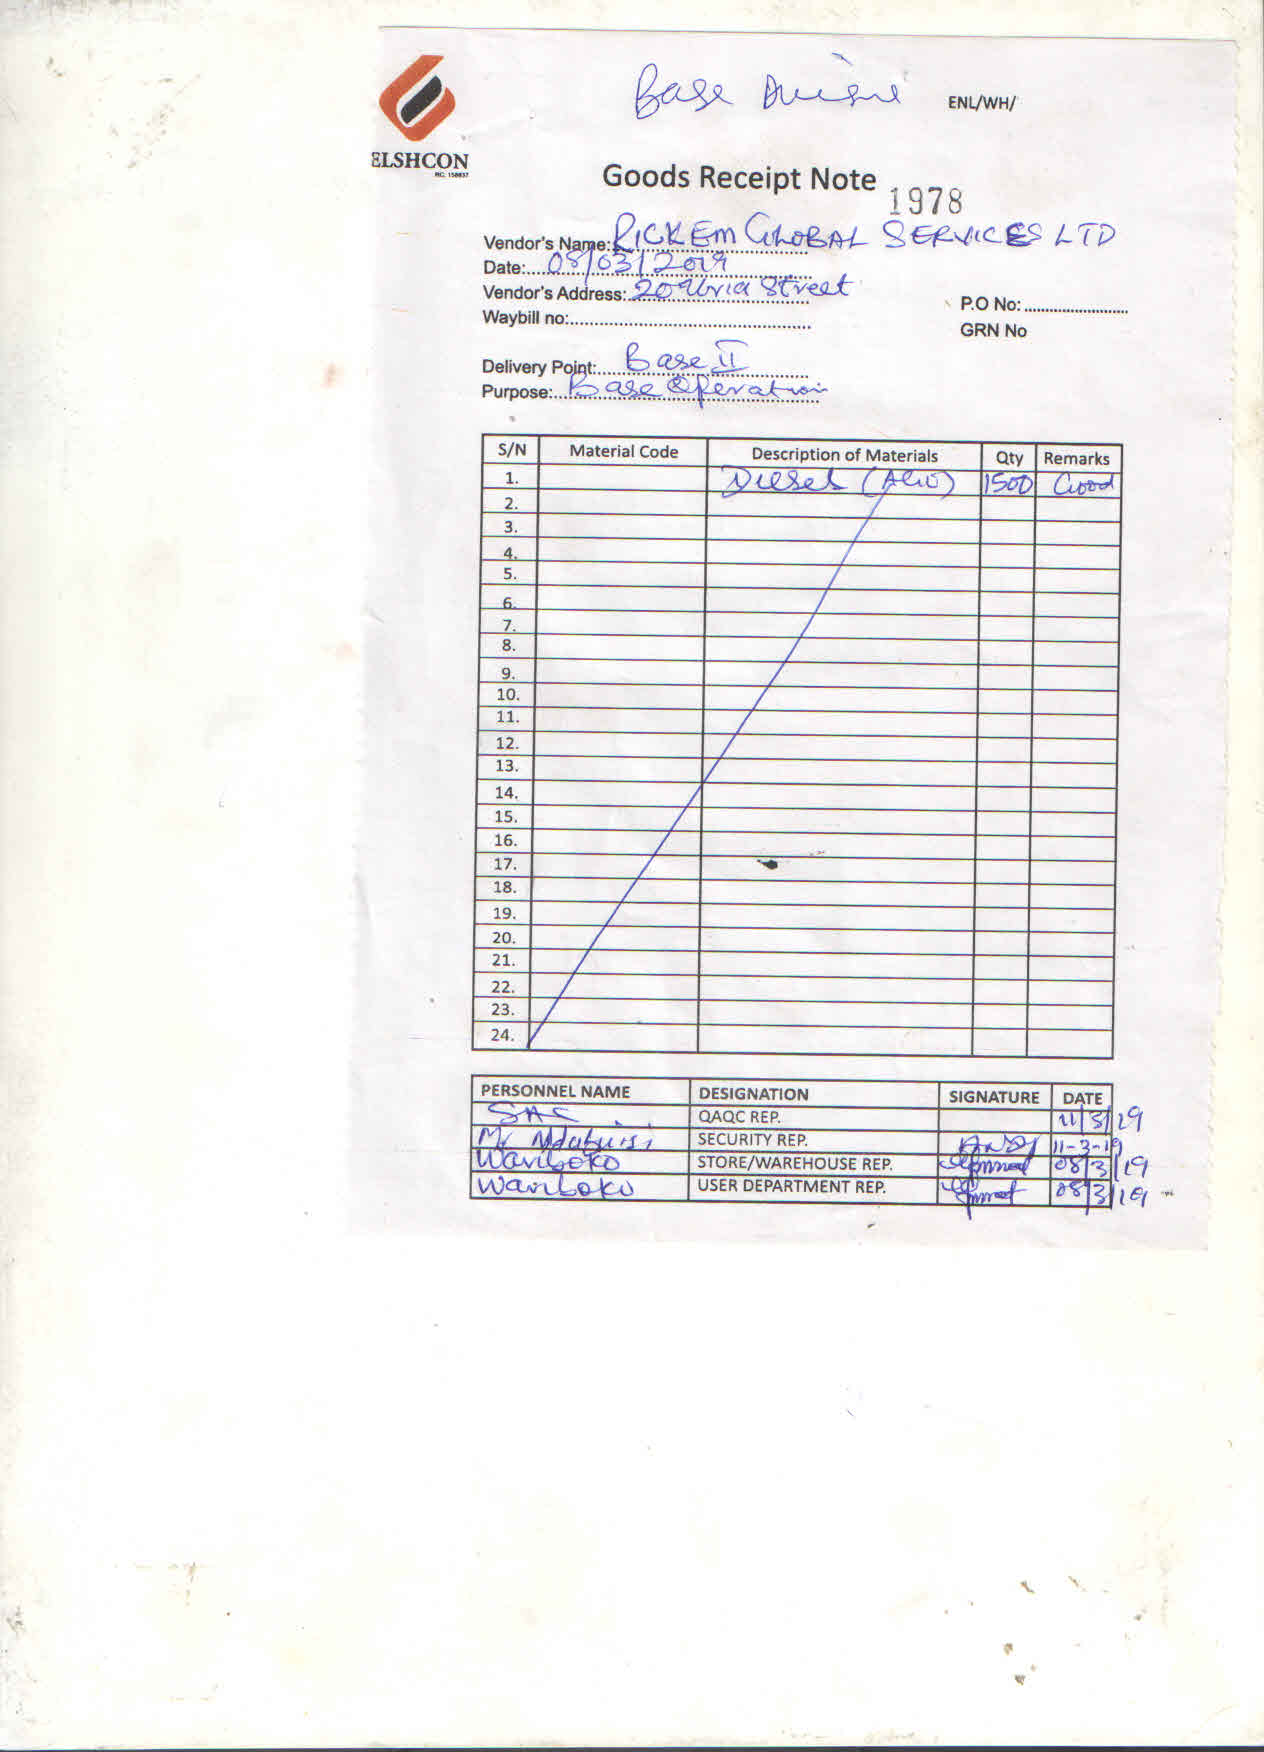 Base
ENL/WH/
ELSHCON
RC. 158837
Goods Receipt Note
1978
Vendor's Name: RICKEM GLOBAL SERVICES LTD
Date: 08/03/2019
Vendor's Address: 20 Street
P.O No:
Waybill no:
GRN No
Delivery Point: Base II
Purpose: Base Operation
S/N Material Code Description of Materials Qty Remarks
1. Diesel (AGO) 1500 Good
2.
3.
4.
5.
6.
7.
8.
9.
10.
11.
12.
13.
14.
15.
16.
17.
18.
19.
20.
21.
22.
23.
24.
PERSONNEL NAME DESIGNATION SIGNATURE DATE
QAQC REP. 11/3/19
Mr SECURITY REP. 11-3-19
Wariboko STORE/WAREHOUSE REP. 08/3/19
Wariboko USER DEPARTMENT REP. 08/3/19